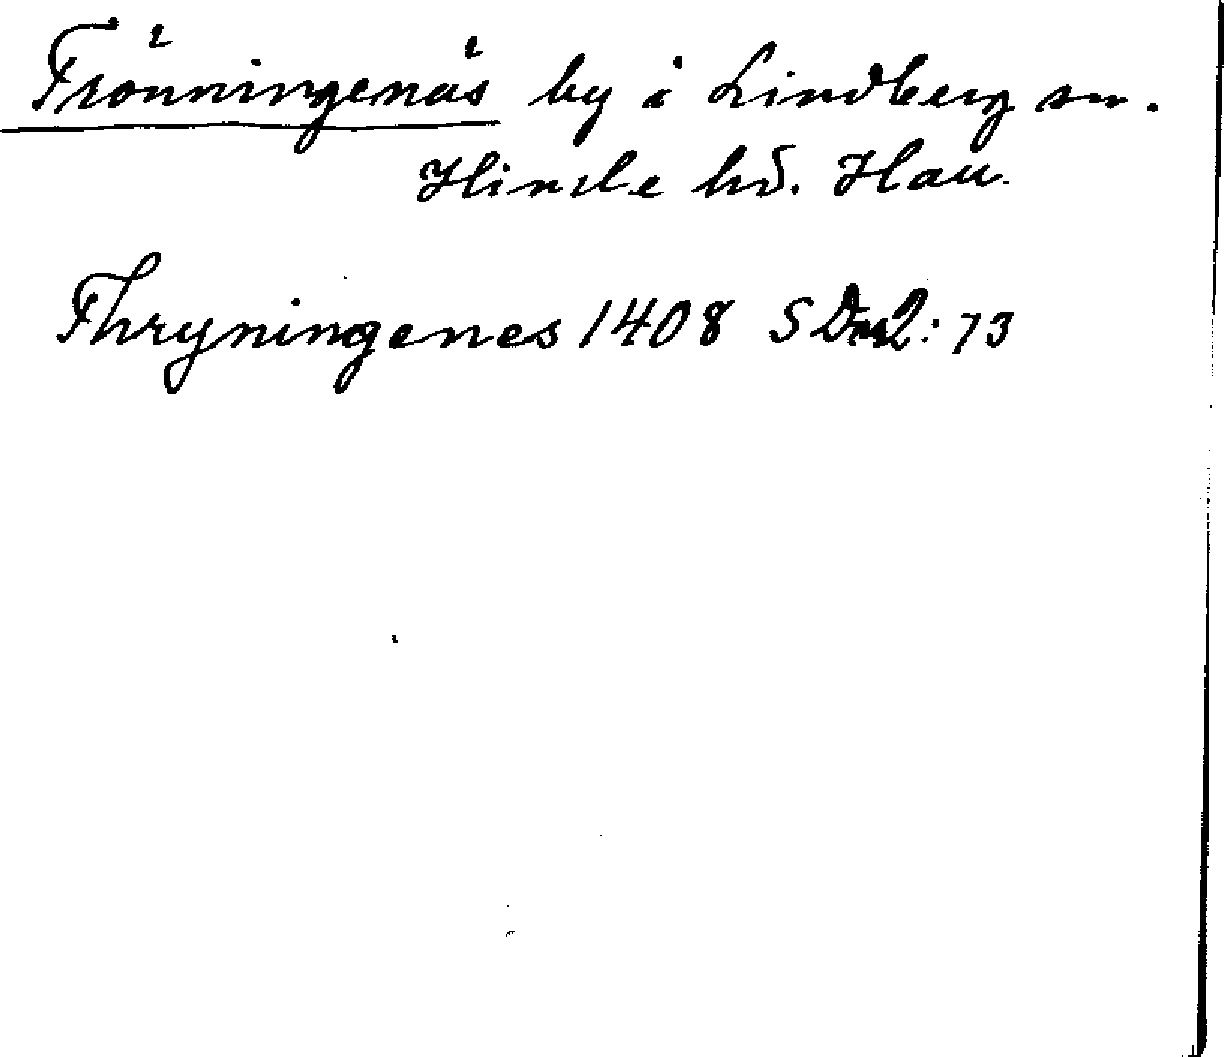 Frönningenäs by i Lindberg sn.
Himle hd. Hall.
Thryningenes 1408 SDns2: 73